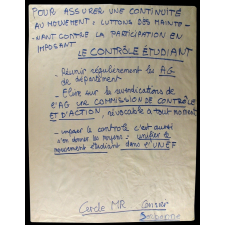 POUR ASSURER UNE CONTINUITÉ
AU MOUVEMENT : LUTTONS DES MAINTE-
-NANT CONTRE LA PARTICIPATION EN
IMPOSANT
LE CONTRÔLE ÉTUDIANT
- Réunir régulièrement les AG
de département
- Élire sur les revendications de
l'AG une COMMISSION DE CONTRÔLE
ET D'ACTION, révocable à tout moment
- imposer le contrôle c'est aussi
s'en donner les moyens : unifier le
mouvement étudiant dans l'UNEF
Cercle MR Censier
Sorbonne